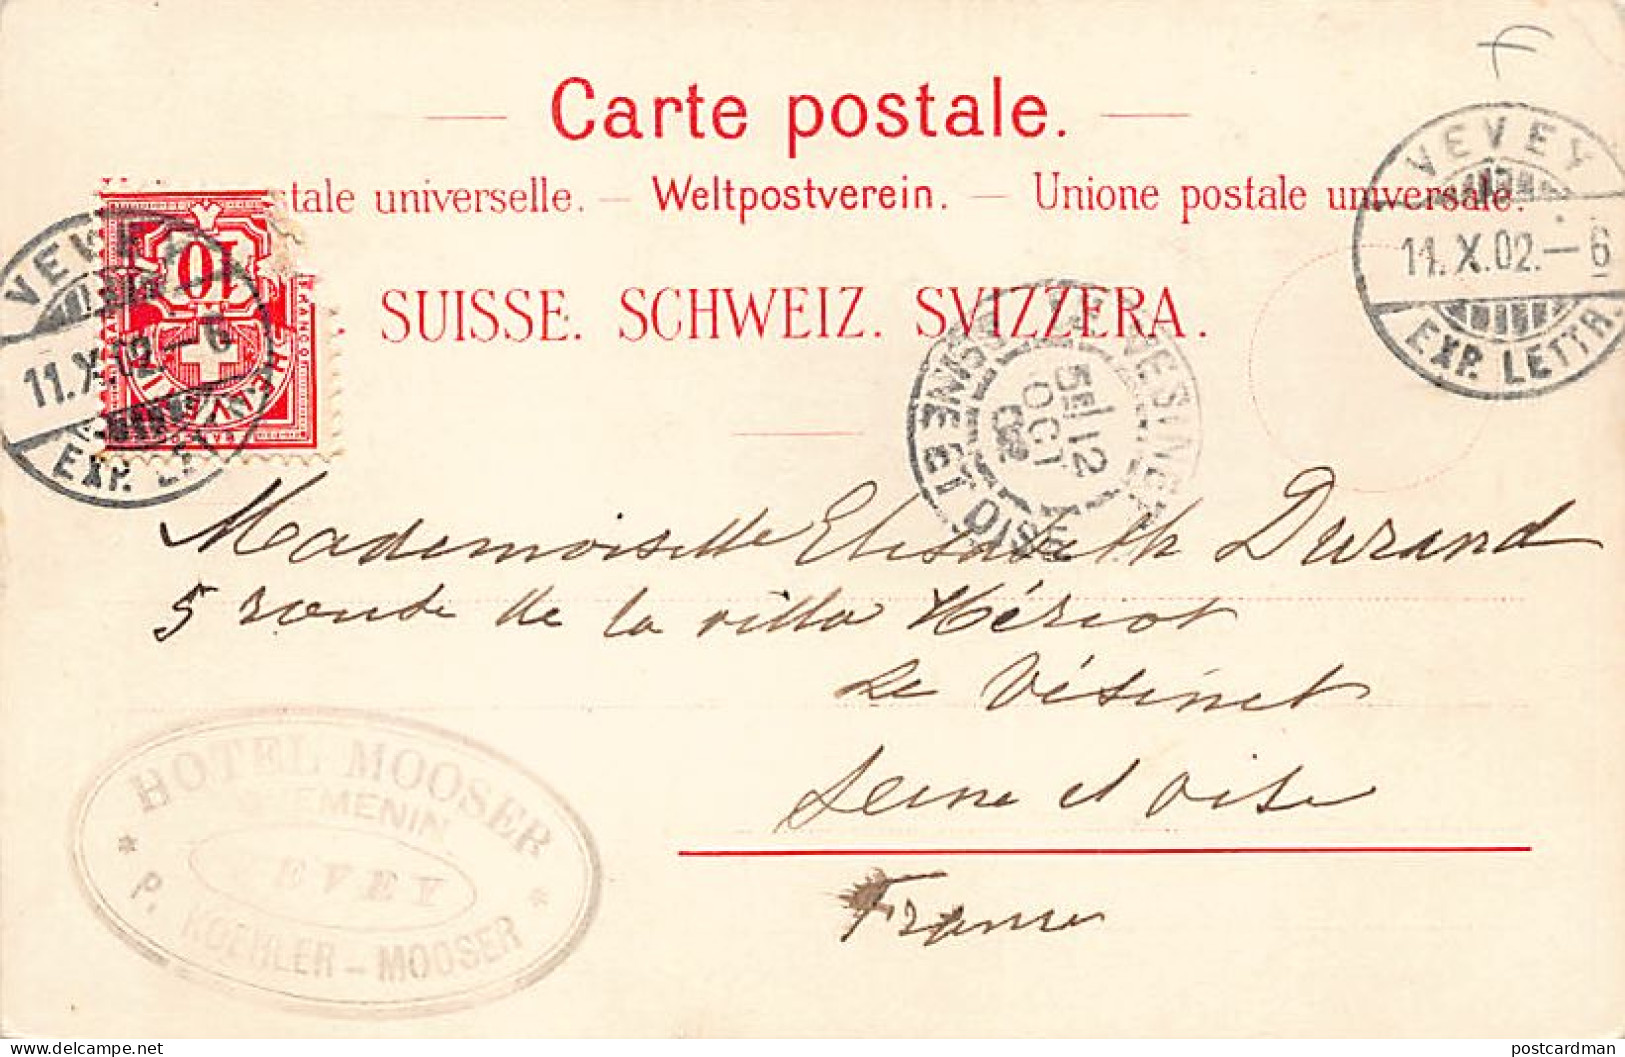 Carte postale.
stale universelle. — Weltpostverein. — Unione postale universale.
SUISSE. SCHWEIZ. SVIZZERA.
VEVEY
11.X.02.–6
EXP. LETTR.
10
FRANCO
HELVETIA
VEVEY
11.X.02.–6
EXP. LETTR.
LE VESINET
5E/12
OCT
02
SEINE ET OISE
Mademoiselle Elisabeth Durand
5 route de la villa Hériot
Le Vésinet
Seine et Oise
France
HOTEL MOOSER
CHEMENIN
VEVEY
P. KOEHLER – MOOSER
www.delcampe.net
postcardman